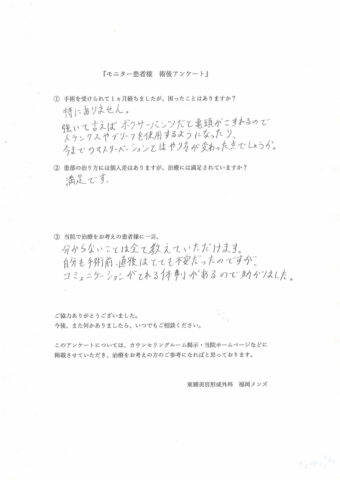 『モニター患者様　術後アンケート』
① 手術を受けられて１ヵ月経ちましたが、困ったことはありますか？
特にありません。
強いて言えばボクサーパンツだと亀頭がこすれるので
トランクスやブリーフを使用するようになったり、
今までのマスターベーションとはやり方が変わった点でしょうか。
② 患部の治り方には個人差はありますが、治療には満足されていますか？
満足です。
③ 当院で治療をお考えの患者様に一言。
分からないことは全て教えていただけます。
自分も手術前、直後はとても不安だったのですが、
コミュニケーションがとれる体制があるので助かりました。
ご協力ありがとうございました。
今後、また何かありましたら、いつでもご相談ください。
このアンケートについては、カウンセリングルーム掲示・当院ホームページなどに
掲載させていただき、治療をお考えの方のご参考になればと思っております。
東郷美容形成外科　福岡メンズ